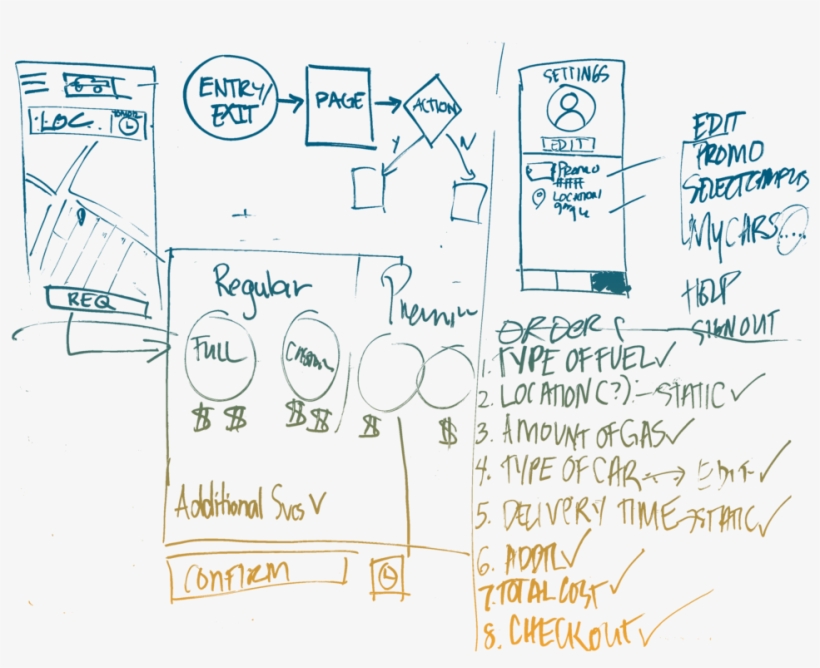 LOC..
REQ
ENTRY/
EXIT
PAGE
ACTION
Y
N
Regular
Premium
FULL
CUSTOM
$ $
$ $
$
$
Additional Svcs
CONFIRM
SETTINGS
EDIT
PROMO
###
LOCATION
EDIT
PROMO
SELECT CAMPUS
MY CARS....
HELP
SIGN OUT
ORDER
1. TYPE OF FUEL ✓
2. LOCATION (?) - STATIC ✓
3. AMOUNT OF GAS ✓
4. TYPE OF CAR <-> EDIT ✓
5. DELIVERY TIME → STATIC ✓
6. ADDTL ✓
7. TOTAL COST ✓
8. CHECKOUT ✓